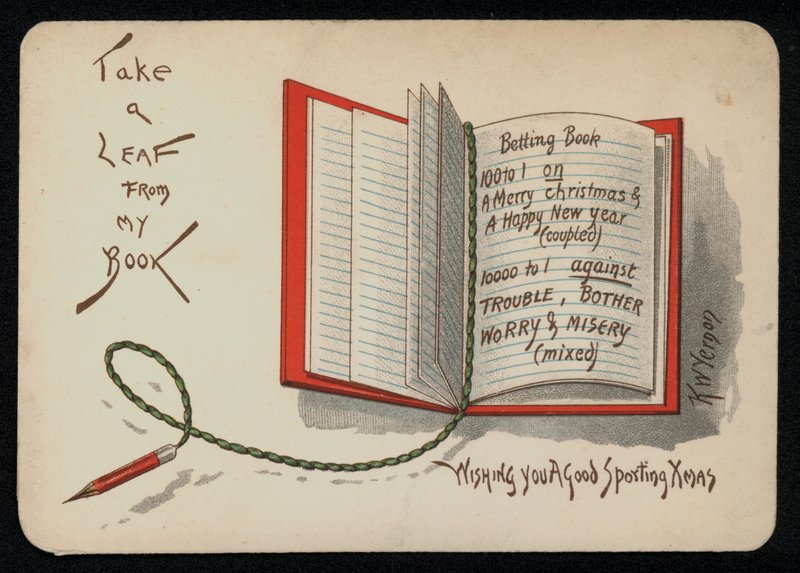 Take
a
LEAF
FROM
MY
BOOK
Betting Book
100 to 1 on
A Merry christmas &
A Happy New year
(coupled)
10000 to 1 against
TROUBLE, BOTHER
WORRY & MISERY
(mixed)
KW Vernon
WISHING YOU A Good Sporting XMAS